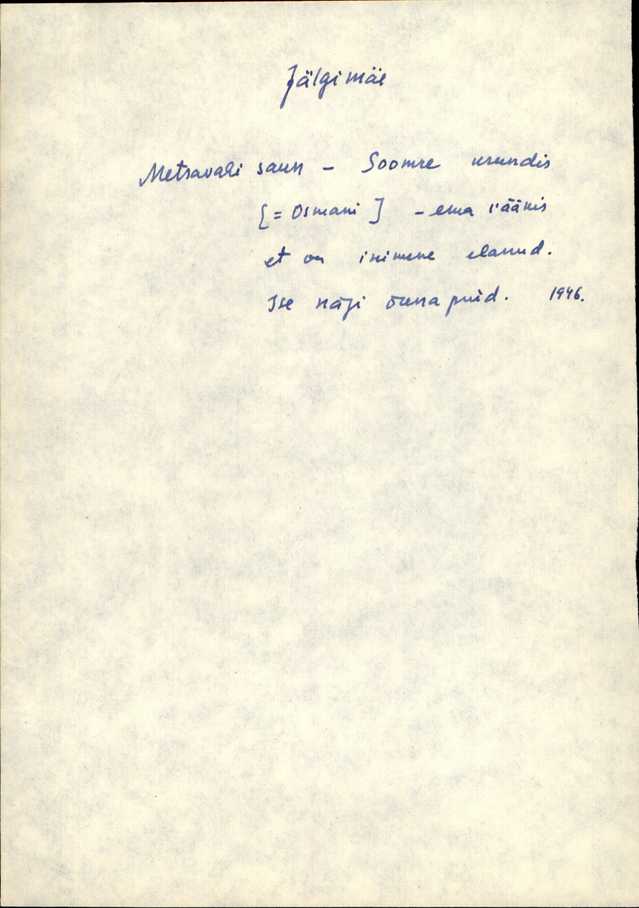 Jälgimäe
Metsavahi saun – Soomre urundis
[= Osmani] – ema rääkis
et on inimene elanud.
Ise nägi õunapuid. 1946.